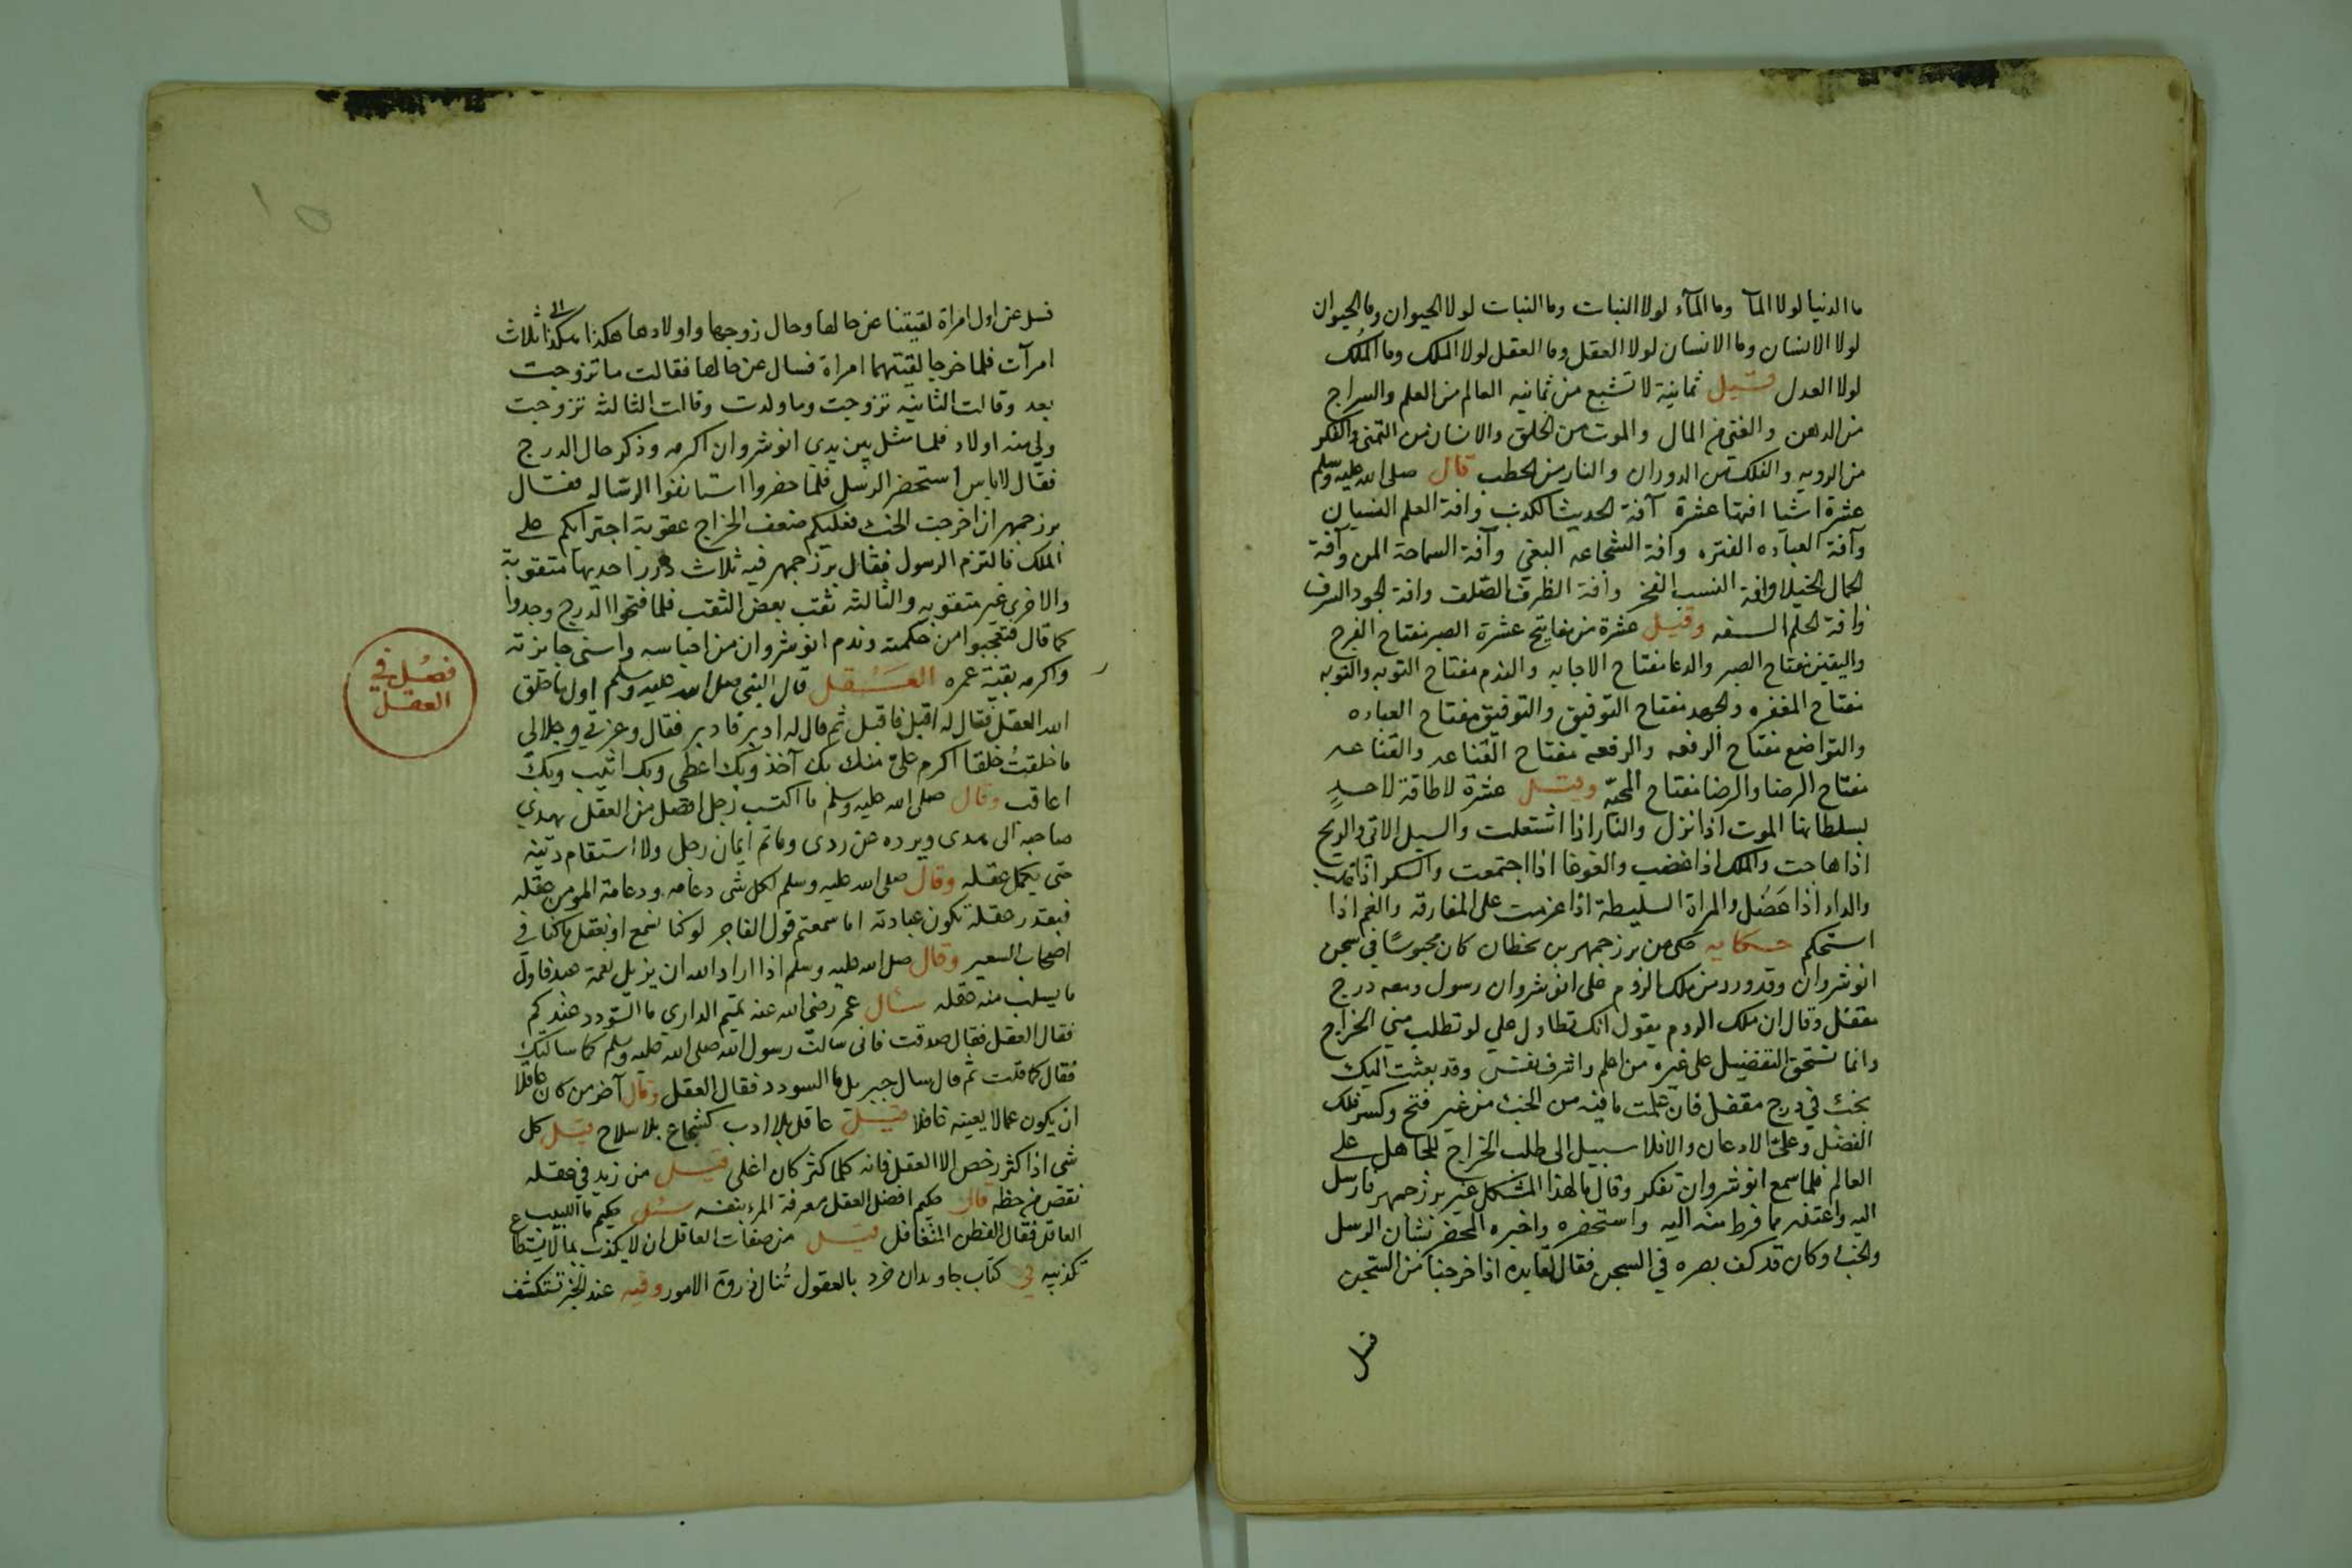 ما الدنيا لولا المآ وما المآء لولا النبات وما النبات لولا الحيوان وما الحيوان
لولا الانسان وما الانسان لولا العقل وما العقل لولا الملك وما الملك
لولا العدل قيل ثمانية لا تشبع من ثمانيه العالم من العلم والسراج
من الدهن والغني من المال والموت من الخلق والانسان من التمنى والفكر
من الرويه والفلك من الدوران والنار من الحطب قال صلى الله عليه وسلم
عشرة اشيا افتها عشرة آفة الحديث الكذب وافة العلم النسيان
وآفة العباده الفتره وافة الشجاعه البغي وآفة السماحة المن وآفة
الجمال الخيلا وافة النسب الفخر وافة الظرف الصلف وافة الجود السرف
وافة الحلم السفه وقيل عشرة من مفاتيح عشرة الصبر مفتاح الفرج
واليقين مفتاح الصبر والدعا مفتاح الاجابه والندم مفتاح التوبه والتوبه
مفتاح المغفره والجهد مفتاح التوفيق والتوفيق مفتاح العباده
والتواضع مفتاح الرفعه والرفعه مفتاح القناعه والقناعه
مفتاح الرضا والرضا مفتاح المحبّه وقيل عشرة لا طاقة لاحدٍ
بسلطانها الموت اذا نزل والنار اذا اشتعلت والسيل الاتى والريح
اذا هاجت والملك اذا غضب والغوغا اذا اجتمعت والسكر اذا
والداء اذا عَضُل والمراة السليطة اذا عزمت على المفارقه والغم اذا
استحكم حكايه حكى من برزجمهر بن بخطان كان محبوسًا في سجن
انوشروان وقد ورد من ملك الروم على انوشروان رسول ومعه درج
مقفل وقال ان ملك الروم يقول انك تطاول علي لو تطلب مني الخراج
وانما تستحق التفضيل على غيره من اعلم واشرف نفس وقد بعثت اليك
بخبء في درج مقفل فان علمت ما فيه من الخبء من غير فتح وكسر فلك
الفضل وعليّ الادعان والافلا سبيل الى طلب الخراج للجاهل على
العالم فلما سمع انوشروان تفكر وقال ما لهذا المشكل غير برزجمهر فارسل
اليه واعتذر ما فرط منه اليه واستحضره واخبره بشان الرسل
والخبء وكان قد كف بصره في السجن فقال لقايده اذا خرجنا من السجن
فسل
فسل عن اول امراة لقيتنا عن حالها وحال زوجها واولادها هكذا هكذا الى ثلاث
امرآت فلما خرجا لقيتهما امراة فسال عن حالها فقالت ما تزوجت
بعد وقالت الثانيه تزوجت وما ولدت وقالت الثالثه تزوجت
ولي منه اولاد فلما مثل بين يدي انوشروان اكرمه وذكر حال الدرج
فقال لا باس استحضر الرسل فلما حضروا استانفوا الرساله فقال
برزجمهر ان اخرجت الخبء فعليكم ضعف الخراج عقوبة اجترايكم على
الملك فالتزم الرسول فقال برزجمهر فيه ثلاث درر احديها مثقوبة
والاخرى غير مثقوبه والثالثه ثقب بعض الثقب فلما فتحوا الدرج وجدوا
كما قال فتعجبوا من حكمته وندم انوشروان من احباسه واسنى جايزته
واكرمه بقية عمره العقل قال النبي صلى الله عليه وسلم اول ما خلق
الله العقل فقال له اقبل فاقبل ثم قال له ادبر فادبر فقال وعزتي وجلالي
ما خلقتُ خلقا اكرم عليّ منك بك آخذ وبك اعطى وبك اثيب وبك
اعاقب وقال صلى الله عليه وسلم ما اكتسب رجل افضل من العقل يهدي
صاحبه الى هدى ويرده عن ردى وما تم ايمان رجل ولا استقام دينه
حتى يكمل عقله وقال صلى الله عليه وسلم لكل شى دعامه ودعامة المومن عقله
فبقدر عقله تكون عبادته اما سمعتم قول الفاجر لو كنا نسمع او نعقل ما كنا في
اصحاب السعير وقال صلى الله عليه وسلم اذا اراد الله ان يزيل نعمة عبد فاول
ما يسلب منه عقله سئال عمر رضى الله عنه تميم الدارى ما السودد عندكم
فقال العقل فقال صدقت فانى سالت رسول الله صلى الله عليه وسلم كما سالتك
فقال كما قلت ثم قال سال جبريل ما السودد فقال العقل وقال آخر من كان عاقلا
ان يكون عمالا يعينه غافلا قيل عاقل بلا ادب كشجاع بلا سلاح قيل كل
شى اذا كثر رخص الا العقل فانه كلما كثر كان اغلى قيل من زيد في عقله
نقص من حظه قال حكيم افضل العقل معرفة المرء بنفسه سئل حكيم ما اللبيب
العاقل فقال الفطن المتغافل قيل من صفات العاقل ان لا يكذب بما لا يستطاع
تكذيبه في كتاب جاويدان خرد بالعقول تُنال ذروة الامور وفيه عند تنكشف
فصل في
العقل